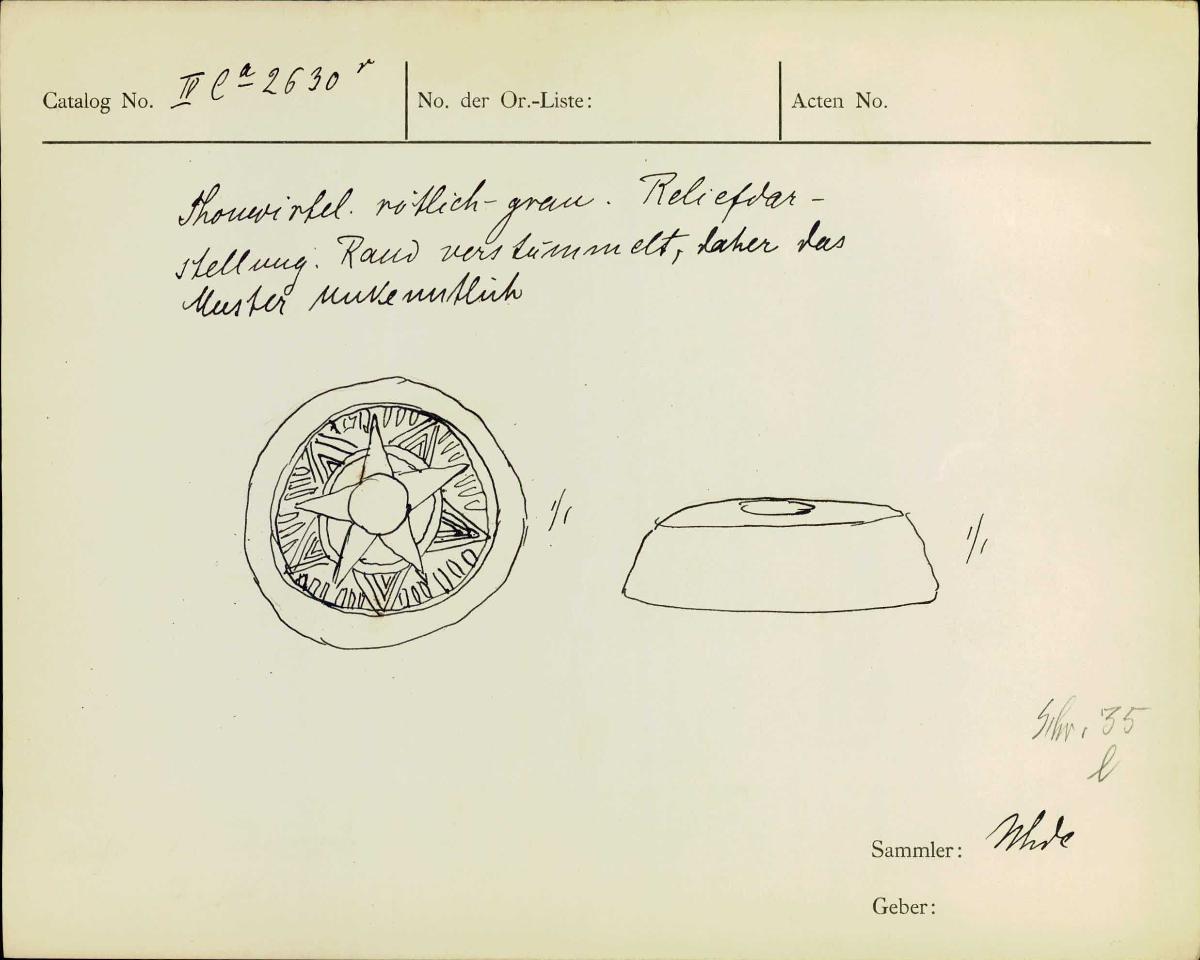 Catalog No. IV Ca 2630 r
No. der Or.-Liste:
Acten No.
Thonwirtel. rötlich-grau. Reliefdar-
stellung. Rand verstümmelt, daher das
Muster unkenntlich
1/1
1/1
Schr. 35
l
Sammler: Uhde
Geber: